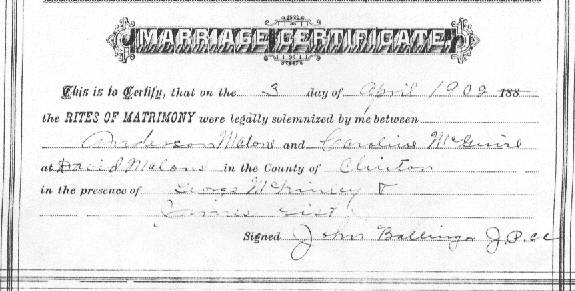 MARRIAGE CERTIFICATE.
This is to Certify, that on the 3 day of April 1909 188
the RITES OF MATRIMONY were legally solemnized by me between
Anderson Malone and Caroline McGuire
at David Malone in the County of Clinton
in the presence of George McKinley &
Signed John Ballinger J.P.CC